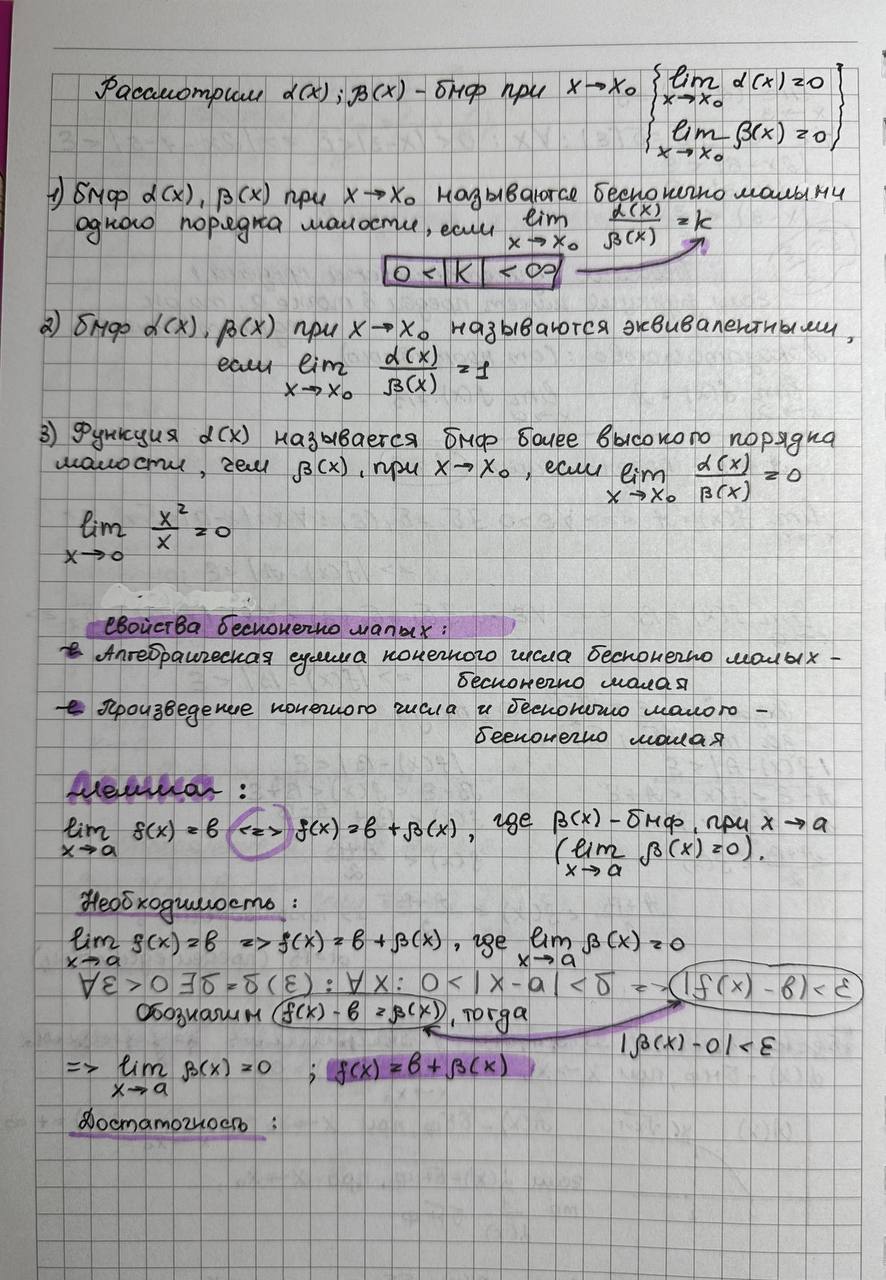 Рассмотрим α(x); β(x) - бмф при x→x₀ { lim x→x₀ α(x) = 0
lim x→x₀ β(x) = 0 }
1) бмф α(x), β(x) при x→x₀ называются бесконечно малыми
одного порядка малости, если lim x→x₀ α(x)/β(x) = k
0 < |k| < ∞
2) бмф α(x), β(x) при x→x₀ называются эквивалентными,
если lim x→x₀ α(x)/β(x) = 1
3) Функция α(x) называется бмф более высокого порядка
малости, чем β(x), при x→x₀, если lim x→x₀ α(x)/β(x) = 0
lim x→0 x²/x = 0
Свойства бесконечно малых:
Алгебраическая сумма конечного числа бесконечно малых -
бесконечно малая
Произведение конечного числа и бесконечно малого -
бесконечно малая
Лемма:
lim x→a f(x) = в <=> f(x) = в + β(x), где β(x) - бмф, при x→a
(lim x→a β(x) = 0).
Необходимость:
lim x→a f(x) = в => f(x) = в + β(x), где lim x→a β(x) = 0
∀ε > 0 ∃δ = δ(ε) : ∀x : 0 < |x - a| < δ => |f(x) - в| < ε
Обозначим f(x) - в = β(x), тогда
|β(x) - 0| < ε
=> lim x→a β(x) = 0 ; f(x) = в + β(x)
Достаточность: